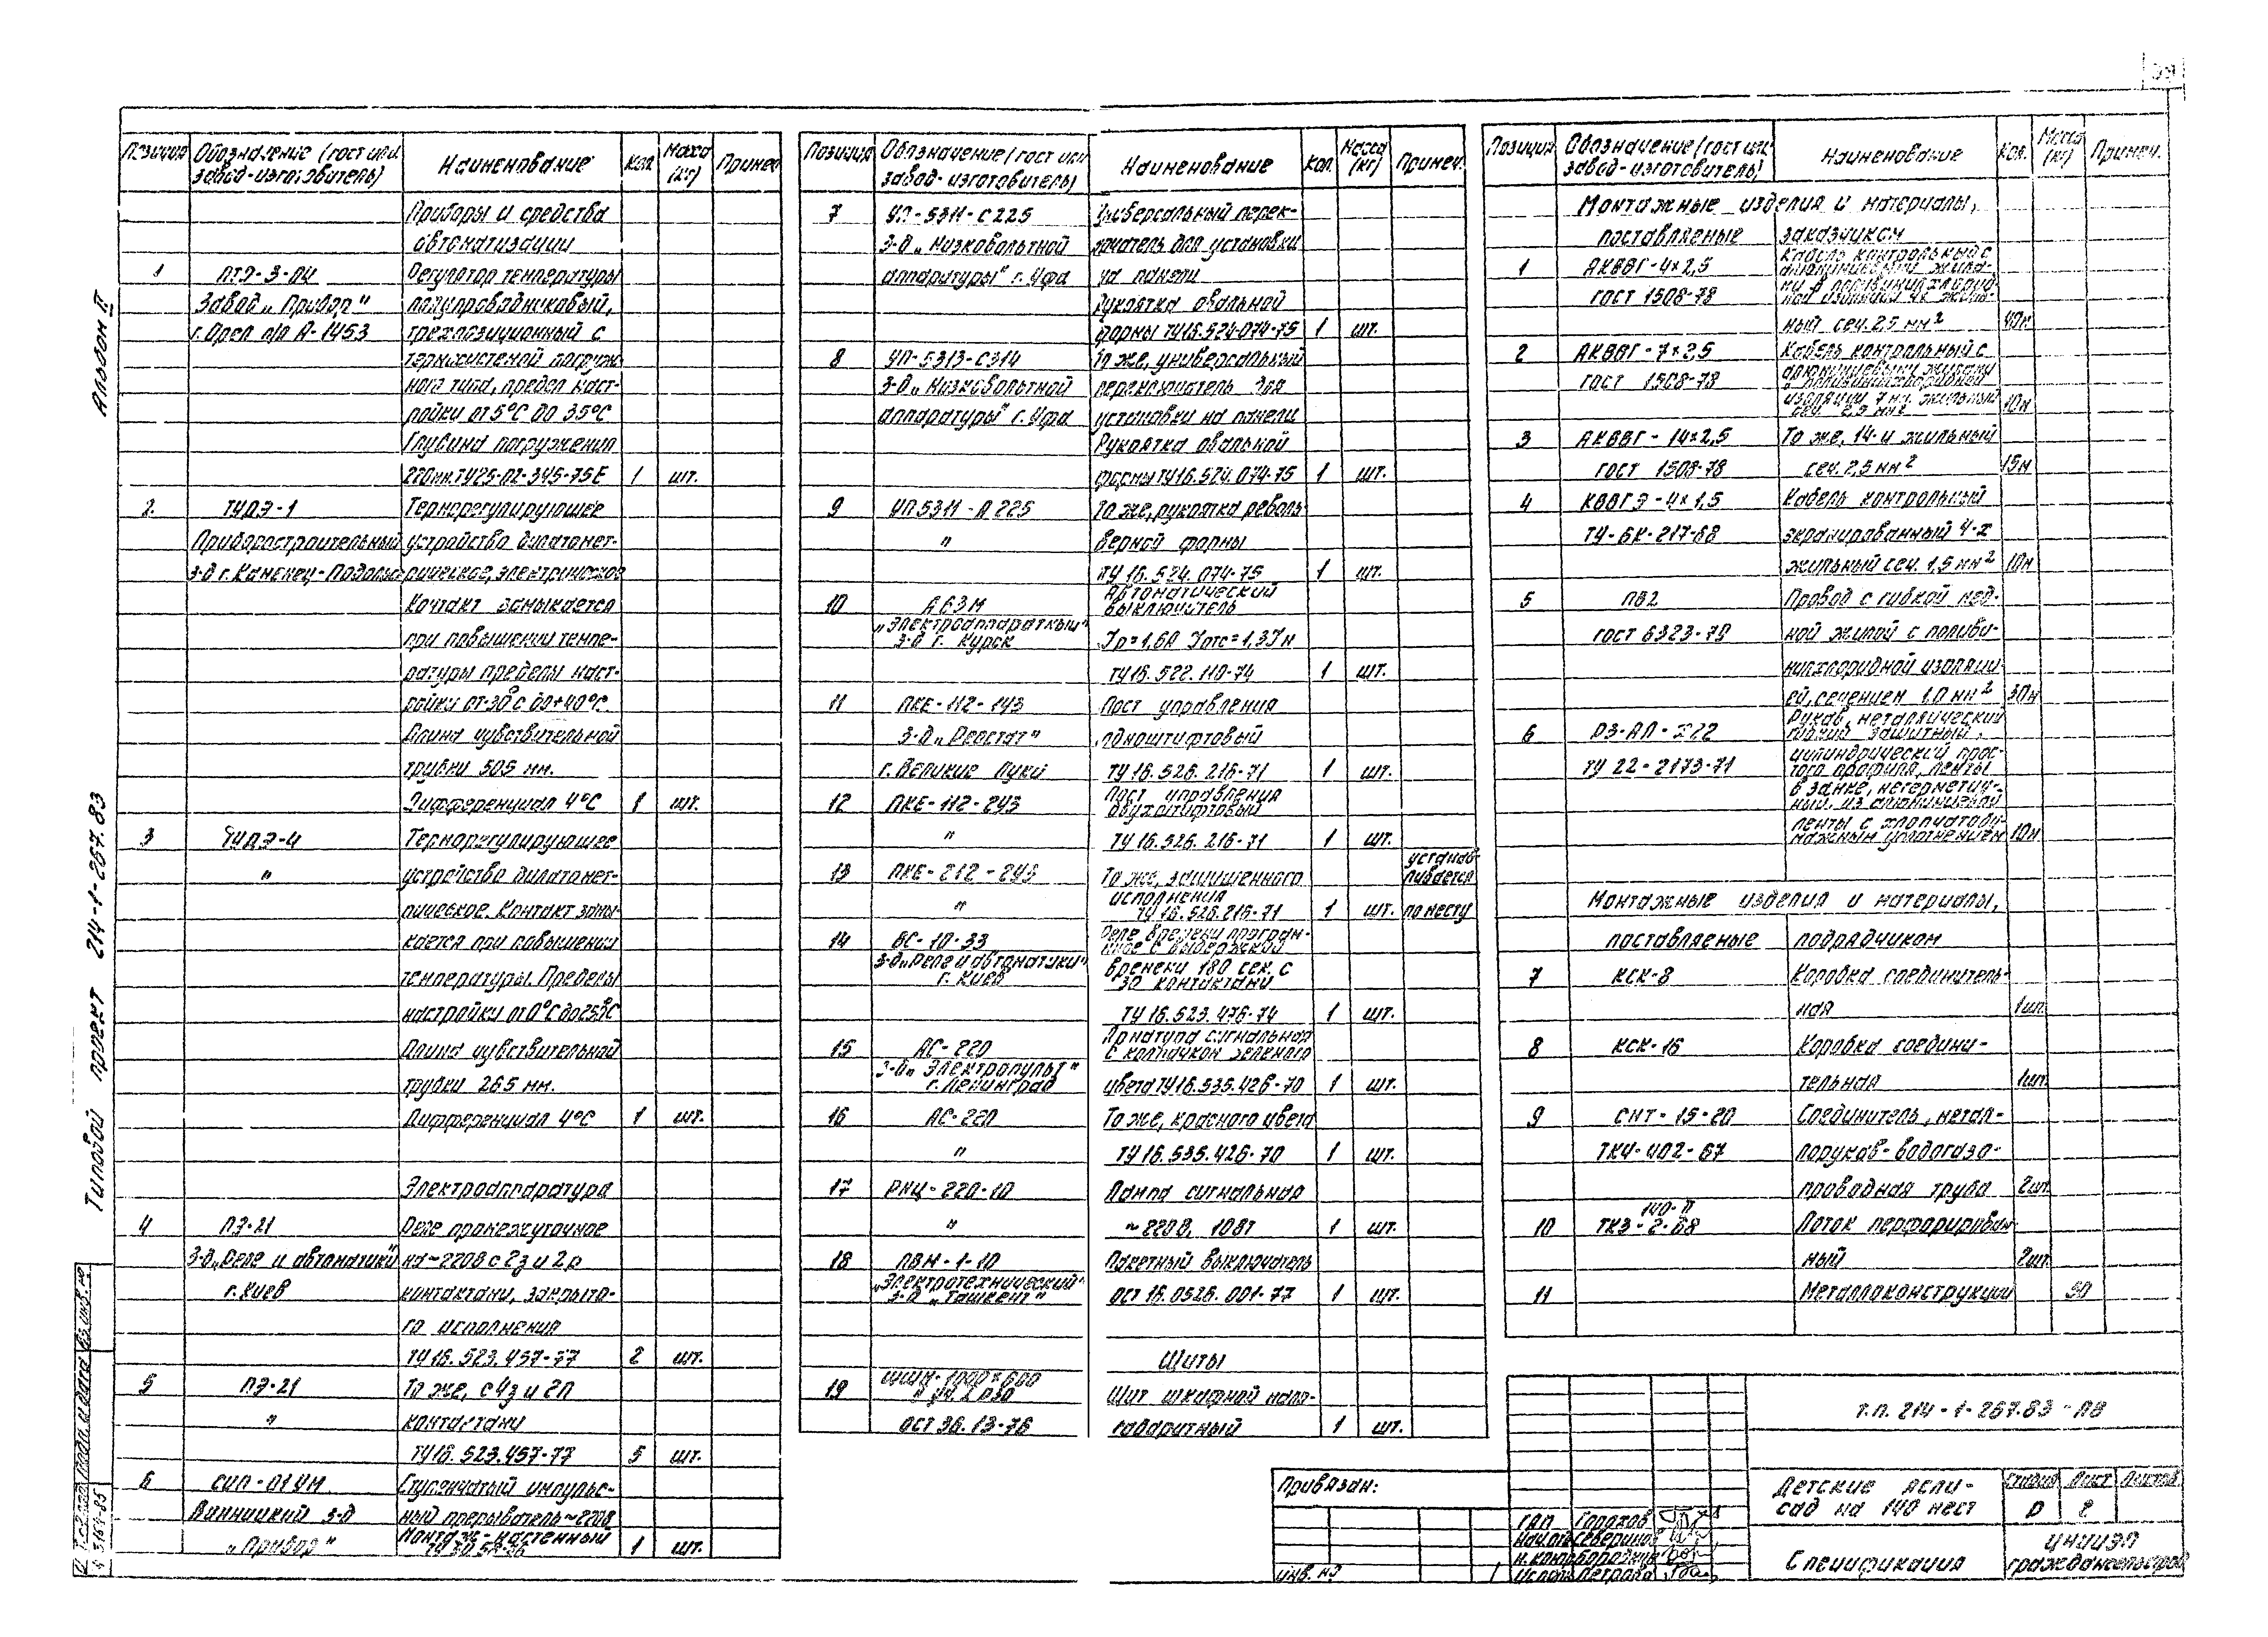 Альбом II
Типовой проект 214-1-267.83
Позиция Обозначение (гост или завод-изготовитель) Наименование Кол. Масса (кг) Примеч.
Приборы и средства
автоматизации
1 ПТР-3-04 Регулятор температуры
Завод „Прибор" полупроводниковый,
г. Орел п/я А-1453 трехпозиционный с
термосистемой погруж-
ного типа, предел наст-
ройки от 5°С до 35°С
Глубина погружения
220мм. ТУ25-02-345-75Е 1 шт.
2 ТУДЭ-1 Терморегулирующее
Приборостроительный устройство дилатомет-
з-д г. Каменец-Подольс рическое, электрическое
Контакт замыкается
при повышении темпе-
ратуры пределы наст-
ройки от-30°С до+40°С.
Длина чувствительной
трубки 505 мм.
Дифференциал 4°С 1 шт.
3 ТУДЭ-4 Терморегулирующее
" устройство дилатомет-
рическое. Контакт замы-
кается при повышении
температуры. Пределы
настройки от 0°С до 250°С
Длина чувствительной
трубки 265 мм.
Дифференциал 4°С 1 шт.
Электроаппаратура
4 ПЭ-21 Реле промежуточное
З-д „Реле и автоматики" на~220В с 2з и 2р
г. Киев контактами, закрыто-
го исполнения
ТУ16.523.457-77 2 шт.
5 ПЭ-21 То же, с 4з и 2р
" контактами
ТУ16.523.457-77 5 шт.
6 СИП-01УМ Ступенчатый импульс-
Винницкий з-д ный прерыватель~220В
„Прибор" Монтаж-настенный
1 шт.
Позиция Обозначение (гост или завод-изготовитель) Наименование Кол. Масса (кг) Примеч.
7 УП-5311-С225 Универсальный перек-
З-д „Низковольтной лючатель для установки
аппаратуры" г. Уфа на панели
Рукоятка овальной
формы ТУ16.524.074-75 1 шт.
8 УП-5313-С314 То же, универсальный
З-д „Низковольтной переключатель для
аппаратуры" г. Уфа установки на панели
Рукоятка овальной
формы ТУ16.524.074-75 1 шт.
9 УП5311-А225 То же, рукоятка револь-
" верной формы
ТУ 16.524.074-75 1 шт.
10 А63М Автоматический выключатель
„Электроаппаратный" з-д г. Курск Jр=1,6А Jотс=1,3Jн
ТУ16.522.110-74 1 шт.
11 ПКЕ-112-143 Пост управления
З-д „Реостат" одноштифтовый
г. Великие Луки ТУ16.526.216-71 1 шт.
12 ПКЕ-112-243 Пост управления двухштифтовый
" ТУ16.526.216-71 1 шт.
13 ПКЕ-212-243 То же, защищенного исполнения устанавливается
" ТУ16.526.216-71 1 шт. по месту
14 ВС-10-33 Реле времени програм-мное с выдержкой
З-д „Реле и автоматики" г. Киев времени 180 сек. с 30 контактами
ТУ16.523.476-74 1 шт.
15 АС-220 Арматура сигнальная с колпачком зеленого
З-д „Электропульт" г. Ленинград цвета ТУ16.535.426-70 1 шт.
16 АС-220 То же, красного цвета
" ТУ16.535.426-70 1 шт.
17 РНЦ-220-10 Лампа сигнальная
" ~220В, 10Вт 1 шт.
18 ПВМ-1-10 Пакетный выключатель
„Электротехнический" з-д „Ташкент" ОСТ 16.0526.001-77 1 шт.
Щиты
19 Щит шкафной мало-
ОСТ 36.13-76 габаритный 1 шт.
Позиция Обозначение (гост или завод-изготовитель) Наименование Кол. Масса (кг) Примеч.
Монтажные изделия и материалы,
поставляемые заказчиком
1 АКВВГ-4×2,5 Кабель контрольный с алюминиевыми жила-
ГОСТ 1508-78 ми в поливинилхлорид-ной изоляции 4х жиль-
ный сеч. 2,5 мм² 40м
2 АКВВГ-7×2,5 Кабель контрольный с
ГОСТ 1508-78 алюминиевыми жилами в поливинилхлоридной
изоляции 7ми жильный сеч. 2,5 мм² 10м
3 АКВВГ-14×2,5 То же, 14-и жильный
ГОСТ 1508-78 сеч. 2,5 мм² 15м
4 КВВГЭ-4×1,5 Кабель контрольный
ТУ-БК-217-68 экранированный 4-х
жильный сеч. 1,5 мм² 10м
5 ПВ2 Провод с гибкой мед-
ГОСТ 6323-79 ной жилой с поливи-
нилхлоридной изоляци-
ей, сечением 1.0 мм² 30м
6 РЗ-АЛ-Х22 Рукав, металлический гибкий защитный,
ТУ 22-2173-71 цилиндрический прос-того профиля, ленты
в замке, негерметич-ный, из алюминиевой
ленты с хлопчатобу-мажным уплотнением 10м
Монтажные изделия и материалы,
поставляемые подрядчиком
7 КСК-8 Коробка соединитель-
ная 1шт.
8 КСК-16 Коробка соедини-
тельная 1шт.
9 СМТ-15-20 Соединитель, метал-
ТК4-402-67 лорукав-водогазо-
проводная труба 2шт.
10 140-П ТКЗ-2-68 Лоток перфорирован-
ный 2шт.
11 Металлоконструкции 50
Привязан:
Инв. №
ГАП Горохов
Нач.отд Северинов
Н.контр
Исполн Петрова
т.п. 214-1-267.83-ПВ
Детские ясли-
сад на 140 мест
Стадия Лист Листов
Р 2
Спецификация
ЦНИИЭП
граждансельстрой